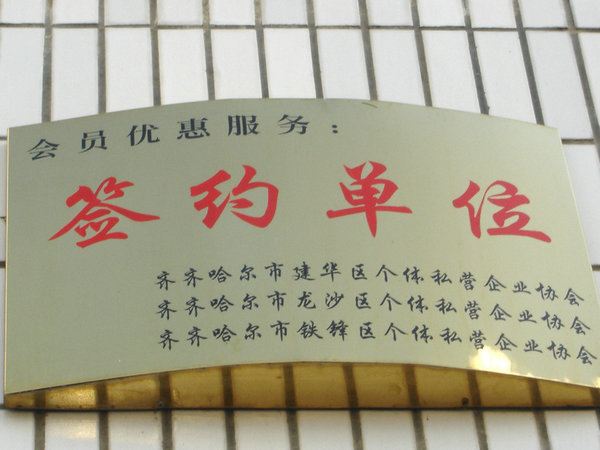 会员优惠服务：
签约单位
齐齐哈尔市建华区个体私营企业协会
齐齐哈尔市龙沙区个体私营企业协会
齐齐哈尔市铁锋区个体私营企业协会